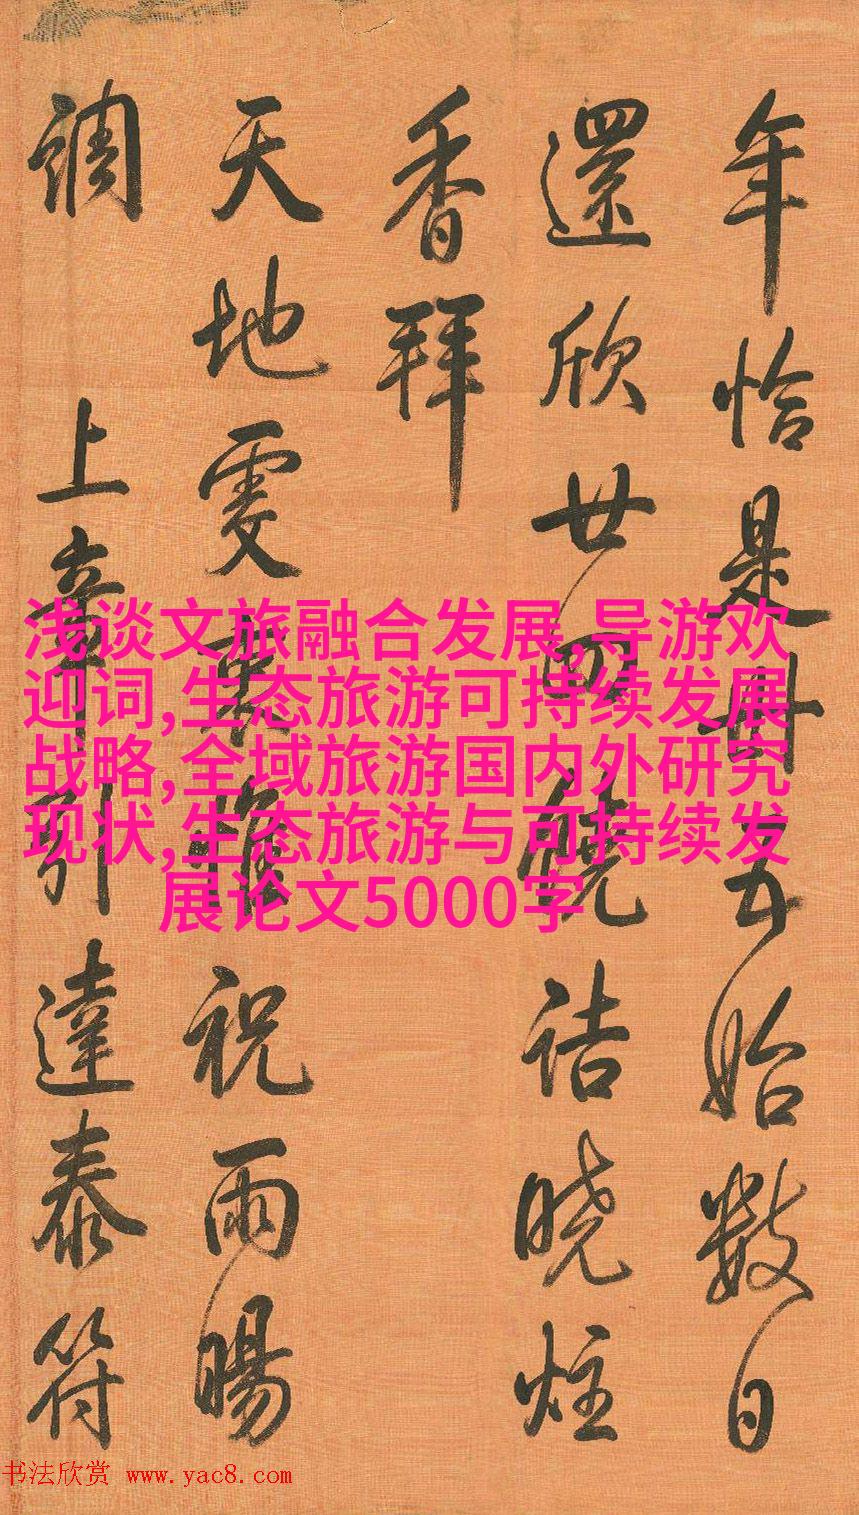 年恰是卅五始數日
還欣廿四饒詰曉炷
香拜
天地虔衷惟祝雨暘
調 上章引達泰符
浅谈文旅融合发展,导游欢
迎词,生态旅游可持续发展
战略,全域旅游国内外研究
现状,生态旅游与可持续发
展论文5000字
书法欣赏 www.yac8.com